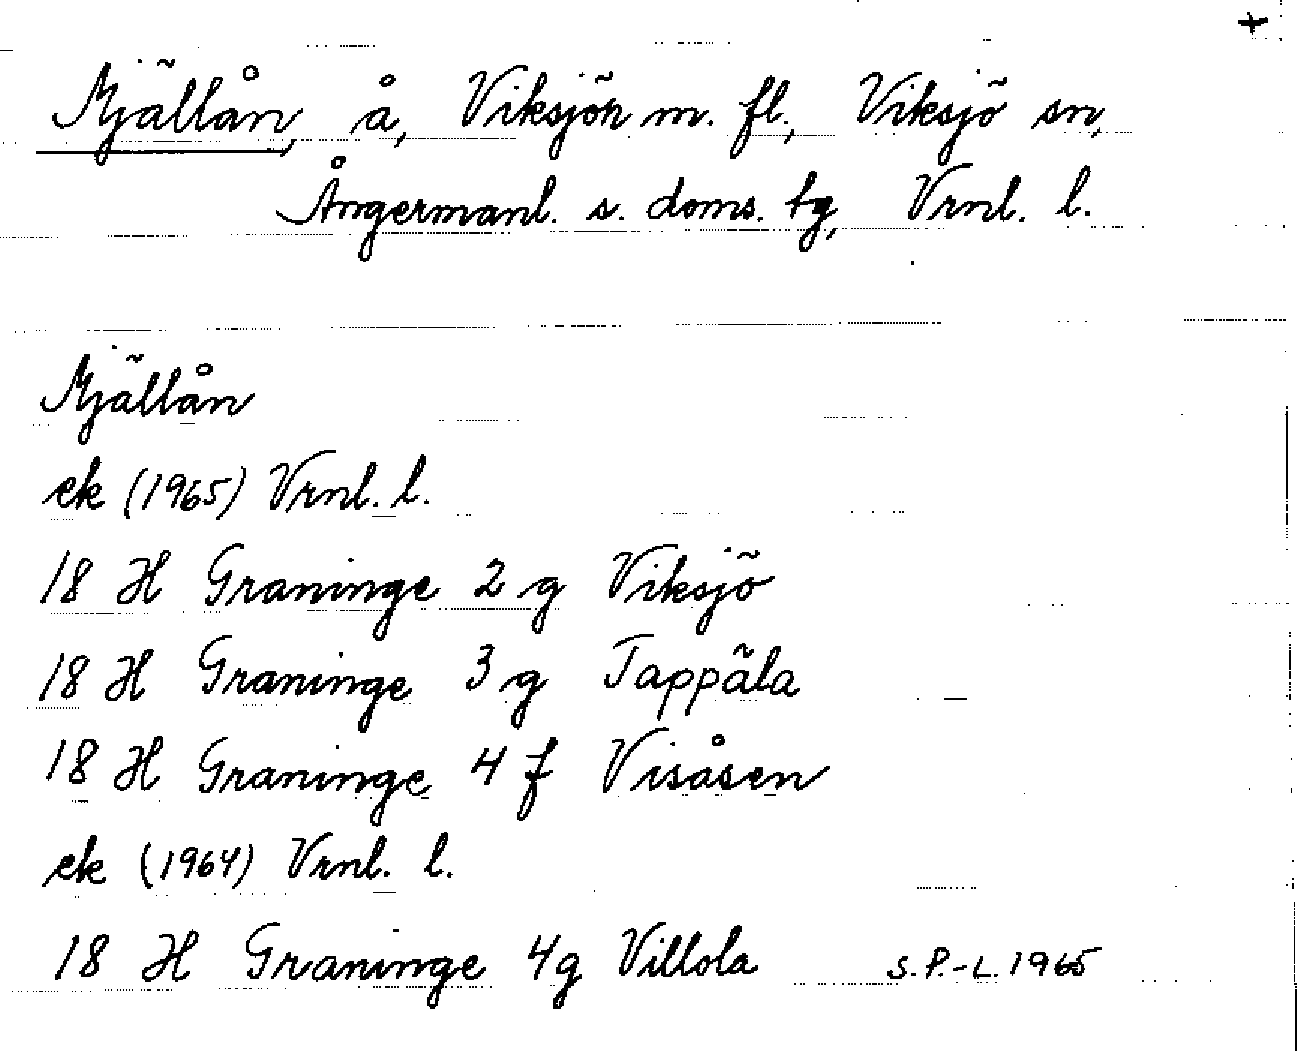 +
Mjällån, å, Viksjön m. fl., Viksjö sn,
Ångermanl. s. doms. tg, Vrnl. l.
Mjällån
ek (1965) Vrnl. l.
18 H Graninge 2 g Viksjö
18 H Graninge 3 g Tappäla
18 H Graninge 4 f Visåsen
ek (1964) Vrnl. l.
18 H Graninge 4g Villola S.P.-L. 1965